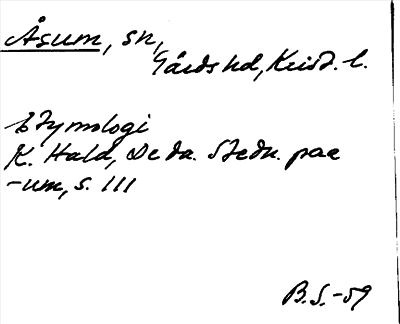 Åsum, sn,
Gärds hd, Krist. l.
Etymologi
K. Hald, De da. Stedn. paa
-um, s. 111
B.S.-59